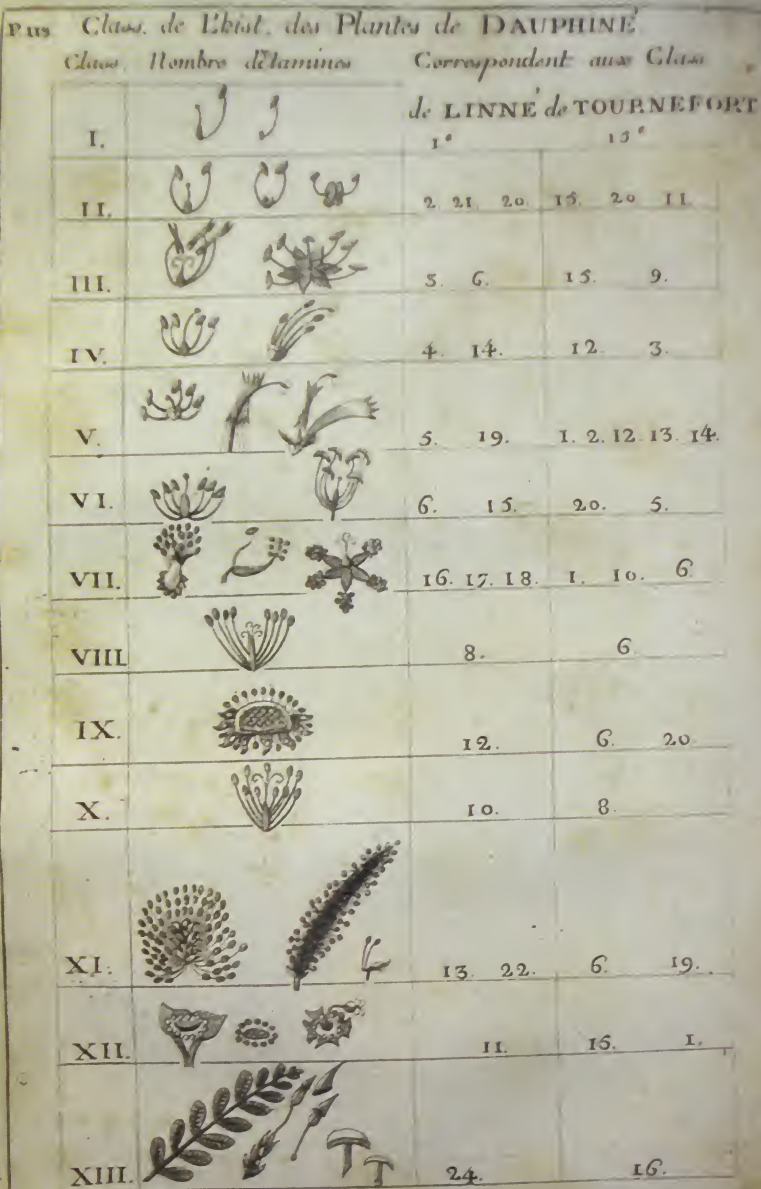 Class. de L'hist. des Plantes de DAUPHINÉ
Class. Nombre d'étamines Correspondent aux Class
de LINNÉ de TOURNEFORT
I. 1e 15e
II. 2 21. 20. 15. 20 11
III. 3. 6. 15. 9.
IV. 4. 14. 12. 3.
V. 5. 19. 1. 2. 12. 13. 14.
VI. 6. 15. 20. 5.
VII. 16. 17. 18. 1. 10. 6
VIII 8. 6
IX. 12. 6. 20
X. 10. 8.
XI. 13 22. 6. 19.
XII. 11. 15. 1.
XIII. 24. 16.